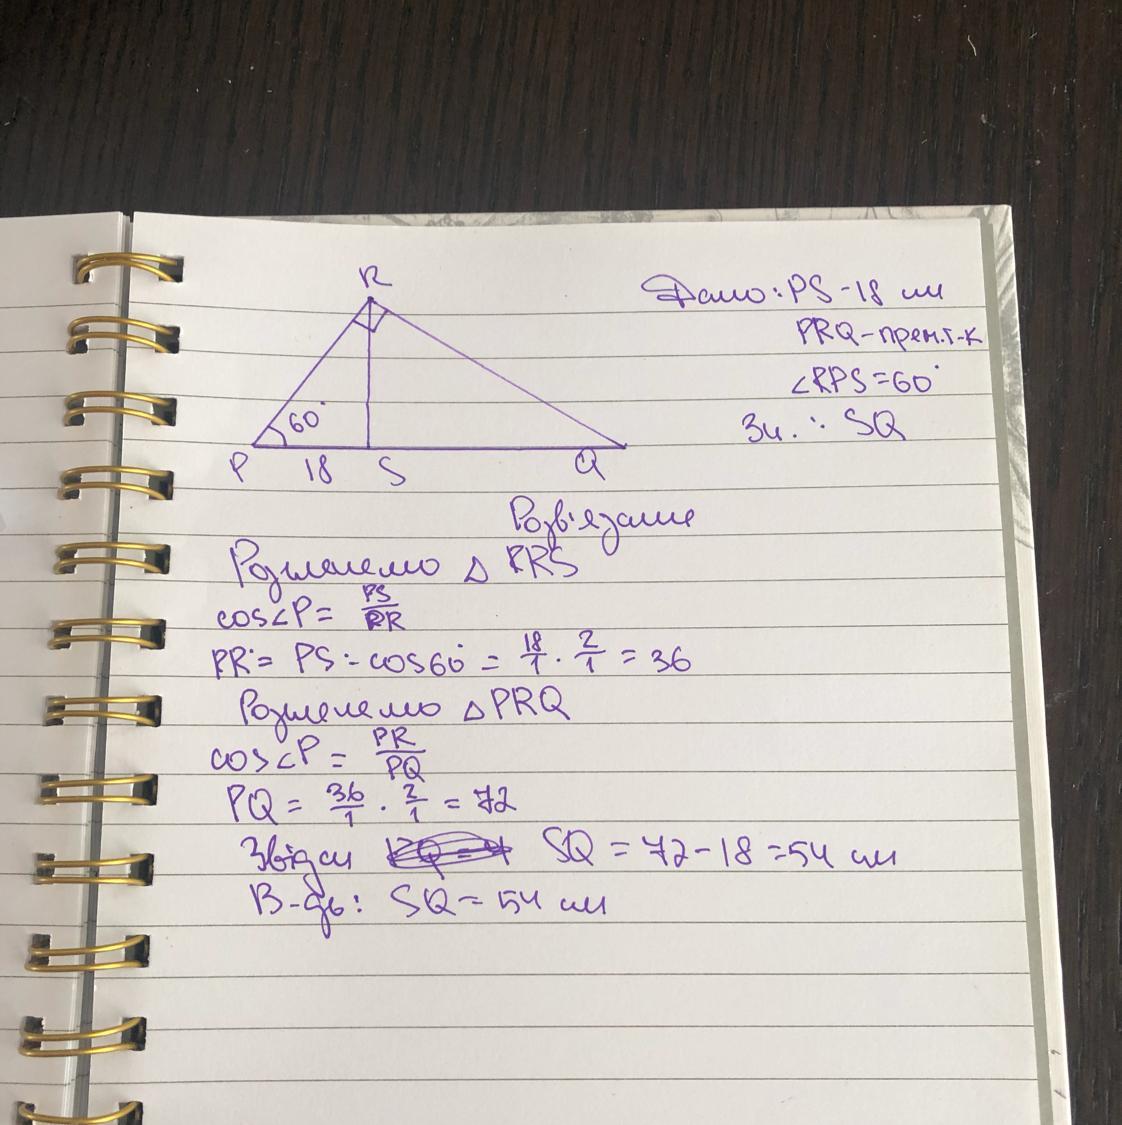 R
60°
P 18 S Q
Дано: PS - 18 см
PRQ - прям. т-к
∠RPS = 60°
Зн. : SQ
Розв'язання
Розглянемо △ PRS
cos∠P = PS/PR
PR = PS : cos60° = 18/1 · 2/1 = 36
Розглянемо △PRQ
cos∠P = PR/PQ
PQ = 36/1 · 2/1 = 72
Звідси SQ = 72 - 18 = 54 см
В-дь: SQ = 54 см